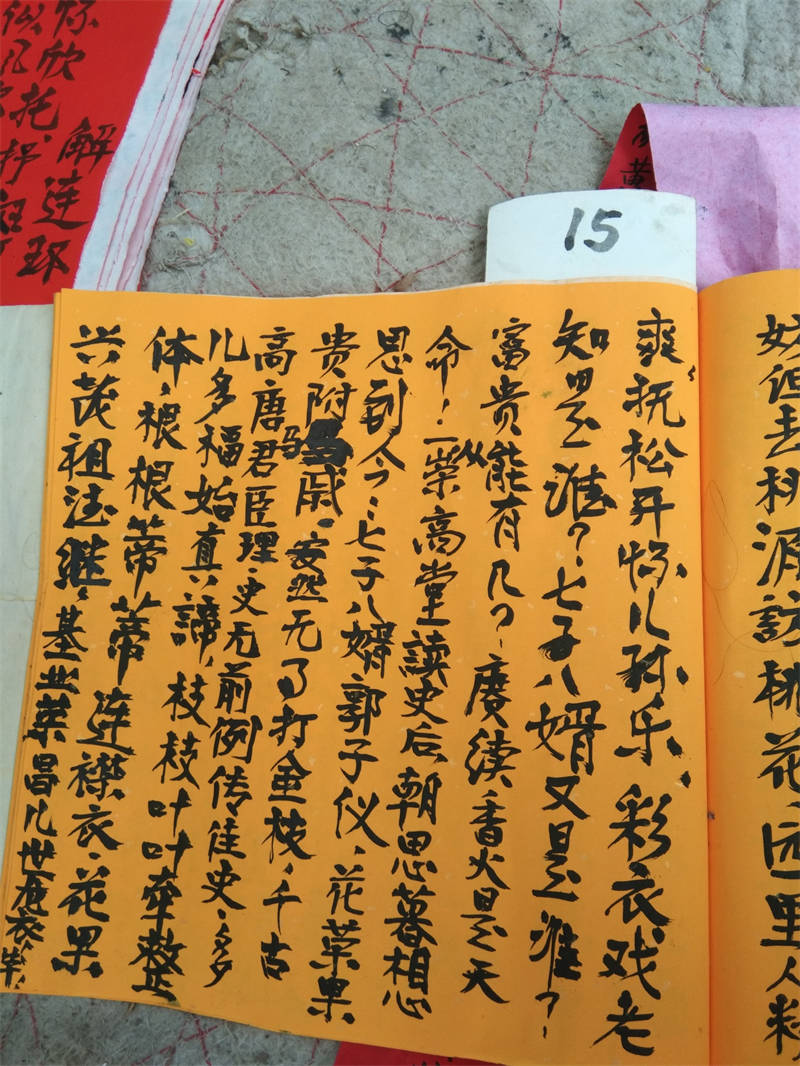 15
爽抚松开怀儿孙乐、彩衣戏老
知是谁?七子八婿又是谁?
富贵能有几?赓续香火是天
命!一荣高堂读史后朝思暮想
思到今、七子八婿郭子仪、花菓果
贵附马戚、安然无了打金枝、千古
高唐君臣理史无前例传佳史、多
儿多福始真谛、枝枝叶叶牵整
体、根根蒂蒂连襟衣、花果
兴茂祖法继、基业荣昌几世
妨但去桃源访桃花园里人
怀欣托
解连环
黄